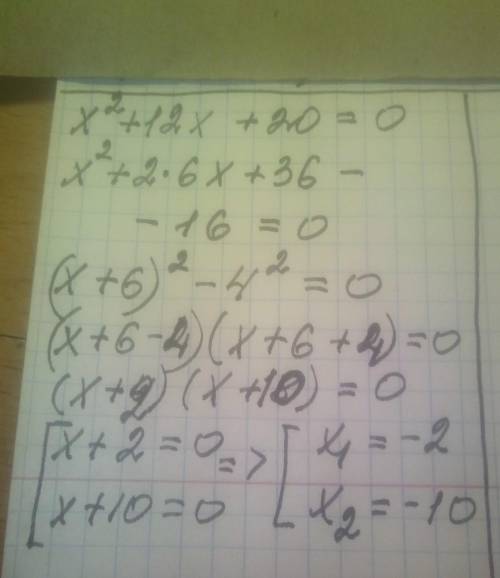 x²+12x +20 = 0
x²+2·6x+36 -
-16 = 0
(x+6)² - 4² = 0
(x+6-4)(x+6+4)=0
(x+2)(x+10) = 0
[x+2=0 => [x₁=-2
x+10=0 x₂=-10